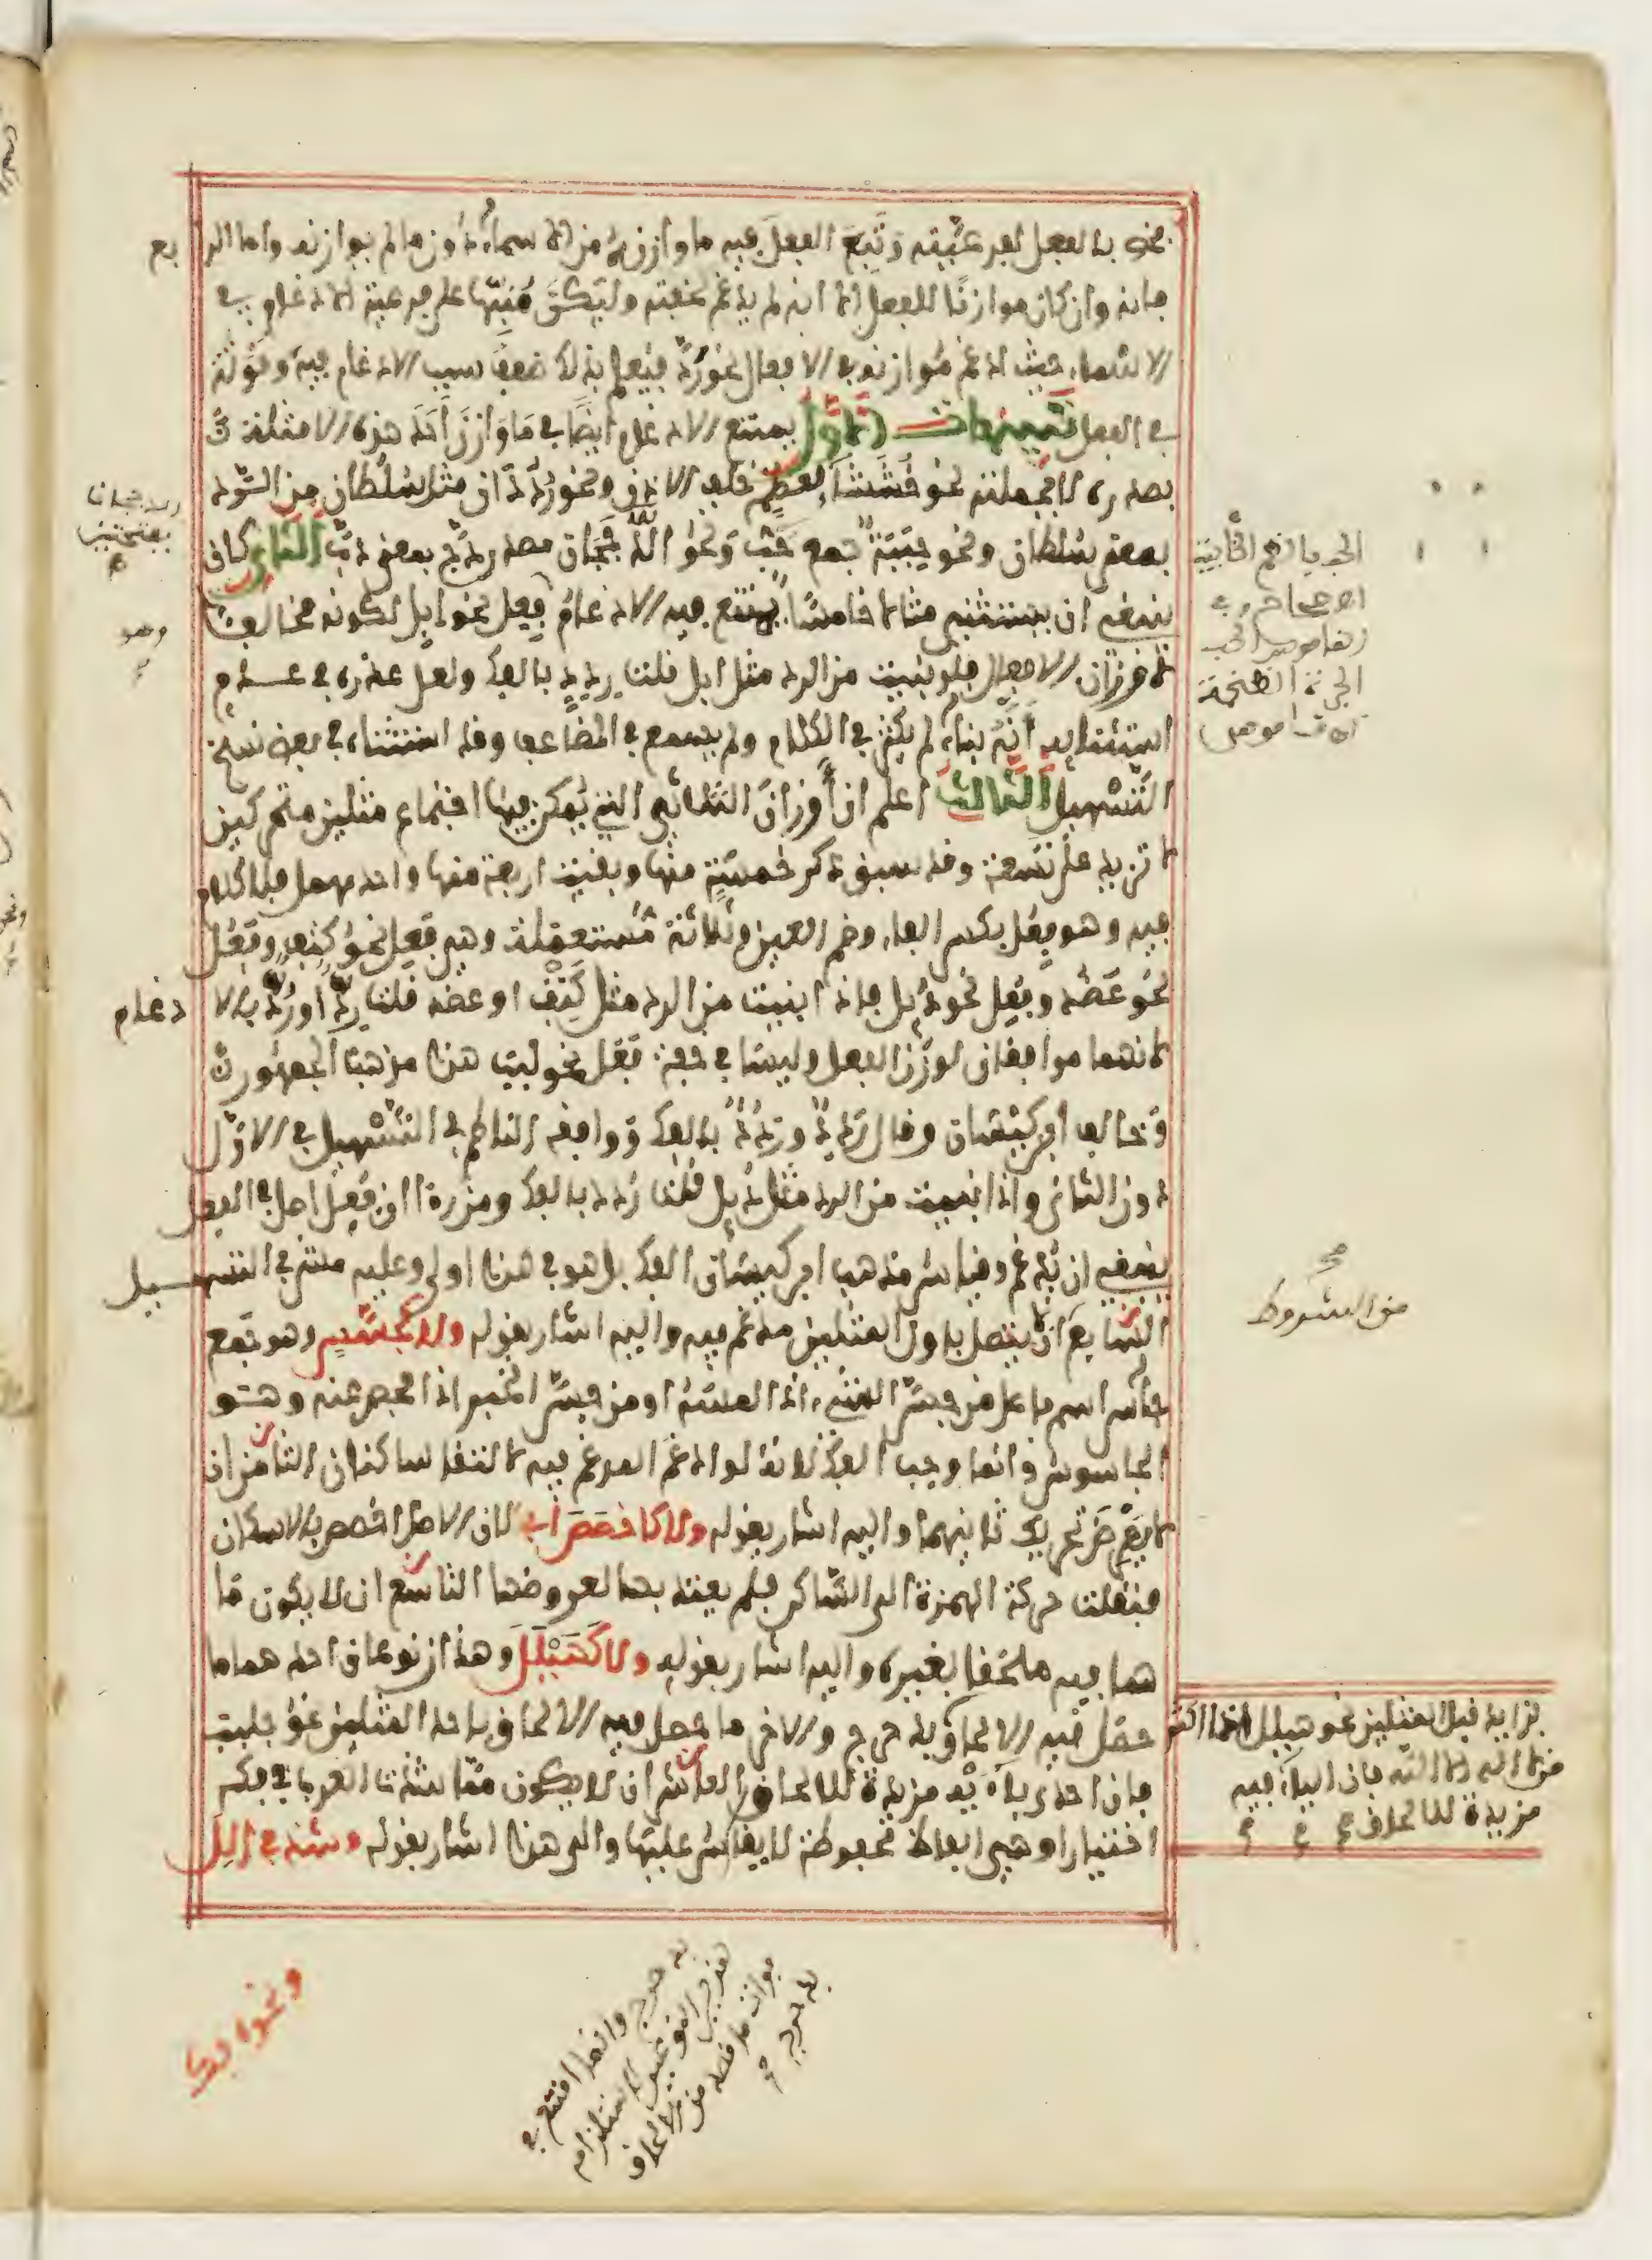 فخص بالفعل لفرعيته وَتَبِعَ الفعلَ فيه ما وازنهُ من الاسماء دون ما لم يوازنه واما الرا بع
فانه وان كان موازنًا للفعل الا انه لم يدغم لخفته وليكون مُنبّها على فرعية الادغام في
الاسماء حيث ادغم مُوازنه في الافعال نحو رُدّ فيعلم بذلك ضعف سبب الادغام فيه وقُوّته
في الفعل تنبيهات الاول يمتنع الادغام ايضًا في مَا وَازَنَ أحَدَ هذه الامثلة
بصدره لا بجملته نحو خُشَشَاء لعظم خلف الاذن ونحو رُدَدَان مثل سُلْطان من الرّد
بمعنى سلطان ونحو حِبَبَة جمع حُبّ وَنحو الدَّجَجَان مصدر دجّ بمعنى دبّ الثاني كان
ينبغي ان يستثني مثالا خامسًا يمتنع فيه الادغام فِعِل نحو ابل لكونه مخالفا
لاوزان الافعال فلو بنيت من الرد مثل ابل قلت رِدِد بالفك ولعل عذره في عدم
استثنائه أنّه بناء لم يكثر في الكلام ولم يسمع في المضاعف وقد استثناه في بعض نسخ
التّسْهيل الثالث اعلم ان أوزان الثلاثي التي يمكن فيها اجتماع مثلين متحركين
لا تزيد على تسعة وقد سبق ذكر خمسة منها وبقيت اربعة منها واحد مهمل فلا كلام
فيه وهو فِعُل بكسر الفاء وضم العين وثلاثة مُستعملة وهي فَعِل نحو كَتِف وفَعُل
نحو عَضُد وفُعِل نحو دُئِل فاذا بنيت من الرد مثل كَتِف او عضد قلت رَدّ أو رُدّ بالا دغام
لانهما موافقان لوزن الفعل وليسا في خفة فَعَل نحو لبب هذا مذهب الجمهور
وَخالف ابن كيسان وقال رَدِدٌ ورَدُدٌ بالفك وَوافقه الناظم في التّسْهيل في الاوّل
دون الثاني واذا بنيت من الرد مثل دُئِل قلت رُدد بالفك ومن رءا ان فُعِل اصل في الفعل
ينبغي ان يُدغم وقياس مذهب ابن كيسان الفك بل هو في هذا اولى وعليه مشى في التسهيل
السّابع أن يتصل باول المثلين مدغم فيه واليه اشار بقوله ولا كجُسّسٍ وهو جَمع
جاسّ اسم فاعل من جسّ الشيء اذا لمسَهُ او من جسّ الخبر اذا فحص عنه وهو
الجاسوس وانما وجب الفك لانه لو ادغم المدغم فيه لالتقا ساكنان الثامن ان
لا يَعْرِضَ تحريك ثانيهما واليه اشار بقوله ولا كاخصُصَ ابي لان الاصل اخصص بالاسكان
فنقلت حركة الهمزة الى الساكن فلم يعتد بها لعروضها التاسع ان لا يكون مَا
هما فيه ملحقا بغيره واليه اشار بقوله ولا كَهَيْلَلَ وهذا نوعان احدهما ما
حصَل فيه الالحاق به حرج والاخر ما حصل فيه الالحاق باحد المثلين نحو جلبب
فان احدى باءيه مزيدة للالحاق العاشر ان لا يكون ممّا شذت العرب في فكه
اختيارا وهي الفاظ محفوظة لا يقاس عليها والى هذا اشار بقوله وشذ في الِل
وهو
دغام
من الشروط
بزايد قبل المثلين نحو هيلل اذا اكثر
من لا اله الا الله فان الياء فيه
مزيدة للالحاق
به حرج وانما امتنع في
هذين النوعين لاستلزامه
فوات ما قصد من الالحاق
به حرج
ونحوه فك